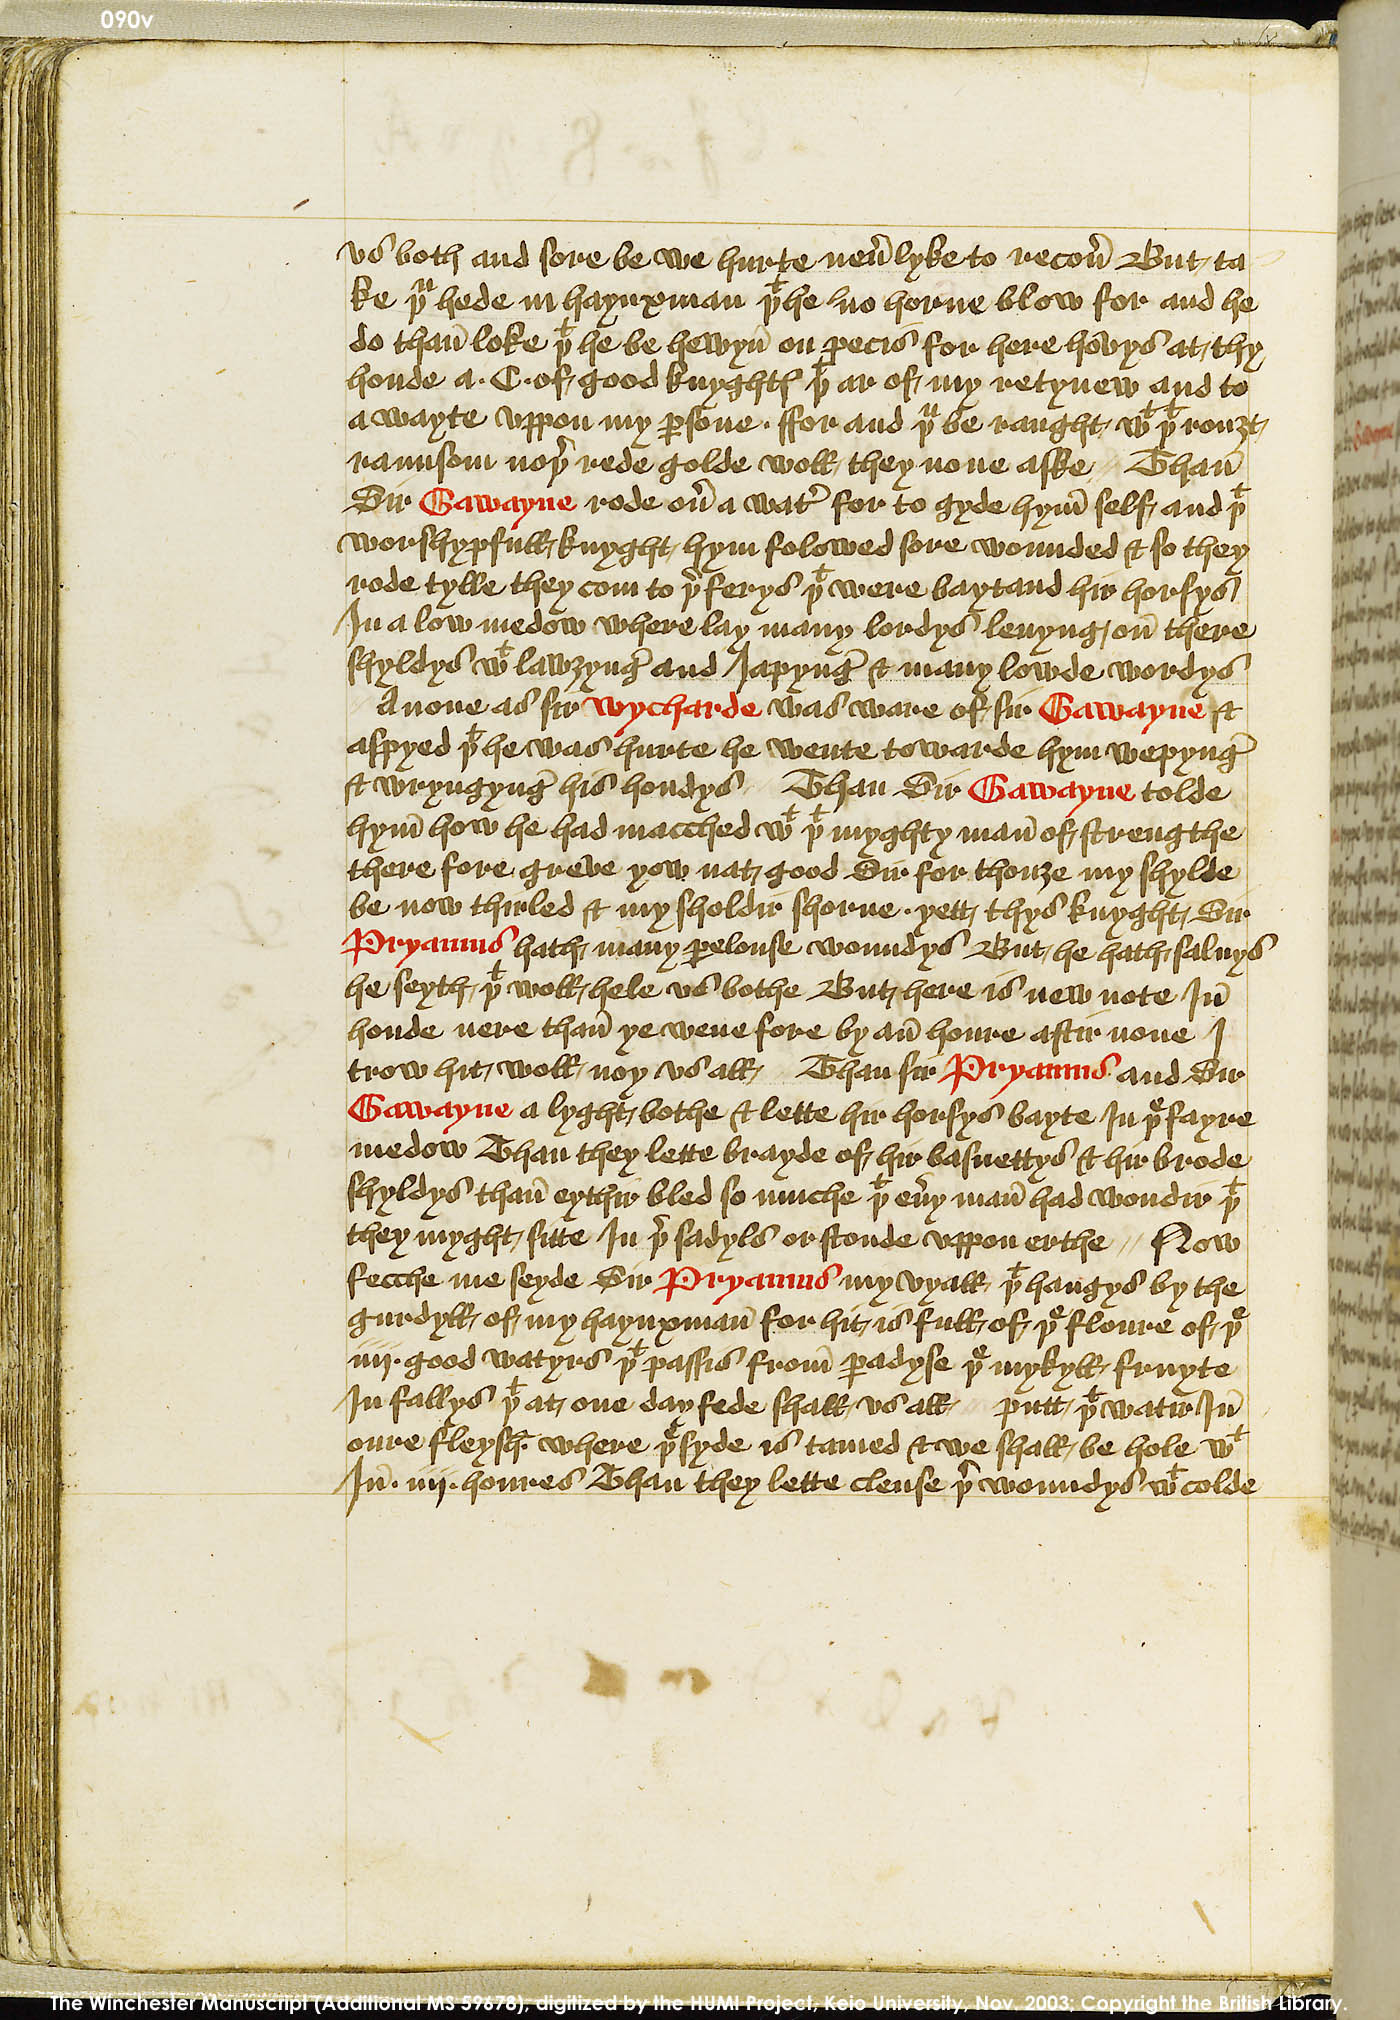 090v
vs both and sore be we hurte neu̾ lyke to recou̾ But ta
ke þͧ hede m haynxman þͭ he no horne blow for and he
do thañ loke þͭ he be hewyñ on pecis for here hovys at thy
honde a · C · of good knyghtꝭ þͭ ar of my retynew and to
a wayte vppon my ꝑsone · ffor and þͧ be raught wͭ þͭ rouȝt
raunsom noþ̾ rede golde woll they none aske // Thañ
Sir Gawayne rode ou̾ a wat̾ for to gyde hym̄ self and þͭ
worshypfull knyght hym folowed sore wounded & so they
rode tylle they com to þ̾ ferys þͭ were baytand hir horsys
In a low medow where lay many lordys lenyng oñ there
shyldys wͭ lawȝyng̾ and Japyng̾ & many lowde wordys
Anone as sir wycharde was ware of sir Gawayne &
aspyed þͭ he was hurte he wente towarde hym wepyng̾
& wryngyng̾ his hondys // Than Sir Gawayne tolde
hym̄ how he had macched wͭ þͭ myghty mañ of strengthe
there fore greve yow nat good Sir for thouȝe my shylde
be now thirled & my sholdir shorne · yett thys knyght Sir
Pryamus hath many ꝑelouse woundys But he hath saluys
he seyth þͭ woll hele vs bothe But here is new note Iñ
honde nere thañ ye wene fore by añ houre aftir none I
trow hit woll noy vs all // Than sir Pryamus and Sir
Gawayne a lyght bothe & lette hir horsys bayte In þͤ fayre
medow Than they lette brayde of hir basnettys & hir brode
shyldys thañ eythir bled so muche þͭ eu̾y mañ had wondir þͭ
they myght sitte In þ̾ sadyls or stonde vppon erthe // Now
fecche me seyde Sir Pryamus my vyall þͭ hangys by the
gurdyll of my haynxmañ for hit is full of þͤ floure of þͤ
iiij · good watyrs þͭ passis from̄ ꝑadyse þͤ mykyll fruyte
In fallys þͭ at one day fede shall vs all // putt þͭ watir Iñ
oure fleysh · where þͤ syde is tamed & we shall be hole wͭ
Iñ · iiij · houres Than they lette clense þ̾ woundys wͭ colde
The Winchester Manuscript (Additional MS 59678), digitized by the HUMI Project, Keio University, Nov. 2003; Copyright the British Library.